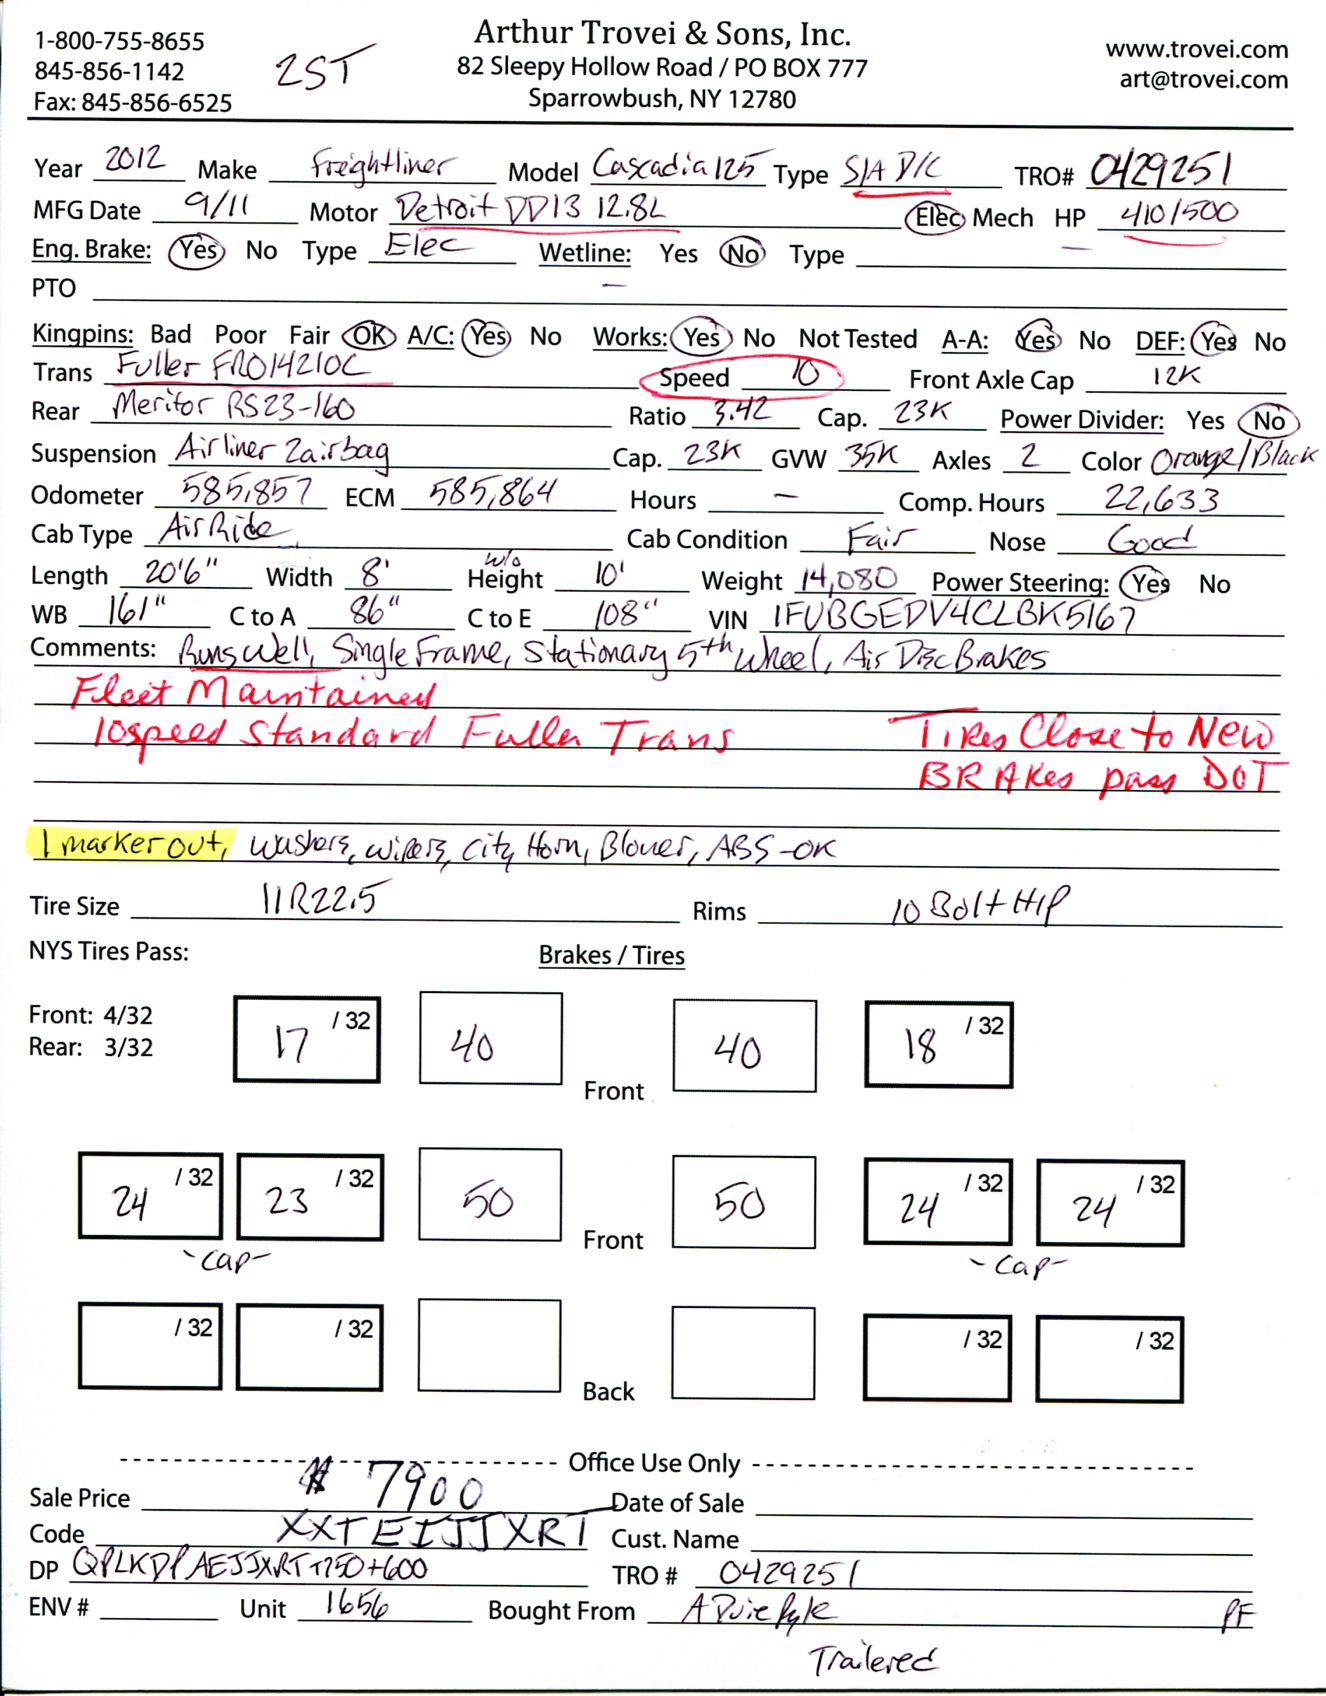 1-800-755-8655
845-856-1142
Fax: 845-856-6525
2ST
Arthur Trovei & Sons, Inc.
82 Sleepy Hollow Road / PO BOX 777
Sparrowbush, NY 12780
www.trovei.com
art@trovei.com
Year 2012 Make Freightliner Model Cascadia 125 Type S/A D/C TRO# 0429251
MFG Date 9/11 Motor Detroit DD13 12.8L Elec Mech HP 410/500
Eng. Brake: Yes No Type Elec Wetline: Yes No Type
PTO —
Kingpins: Bad Poor Fair OK A/C: Yes No Works: Yes No Not Tested A-A: Yes No DEF: Yes No
Trans Fuller FRO14210C Speed 10 Front Axle Cap 12K
Rear Meritor RS23-160 Ratio 3.42 Cap. 23K Power Divider: Yes No
Suspension Airliner 2airbag Cap. 23K GVW 35K Axles 2 Color Orange/Black
Odometer 585,857 ECM 585,864 Hours — Comp. Hours 22,633
Cab Type Air Ride Cab Condition Fair Nose Good
Length 20'6" Width 8' w/o Height 10' Weight 14,080 Power Steering: Yes No
WB 161" C to A 86" C to E 108" VIN 1FUBGEDV4CLBK5167
Comments: Runs Well, Single Frame, Stationary 5th Wheel, Air Disc Brakes
Fleet Maintained
10speed Standard Fuller Trans Tires Close to New
BRAKes pass DOT
1 marker out, Washers, wipers, City Horn, Blower, ABS-OK
Tire Size 11R22.5 Rims 10 Bolt HP
NYS Tires Pass: Brakes / Tires
Front: 4/32
Rear: 3/32
17 /32 40 Front 40 18 /32
24 /32 23 /32 50 Front 50 24 /32 24 /32
-Cap- -Cap-
/32 /32 Back /32 /32
Office Use Only
Sale Price $ 7900 Date of Sale
Code XXTEIJJXRT Cust. Name
DP QPLKDPAEJJXRT+250+600 TRO # 0429251
ENV # Unit 1656 Bought From A Duie Pyle PF
Trailered